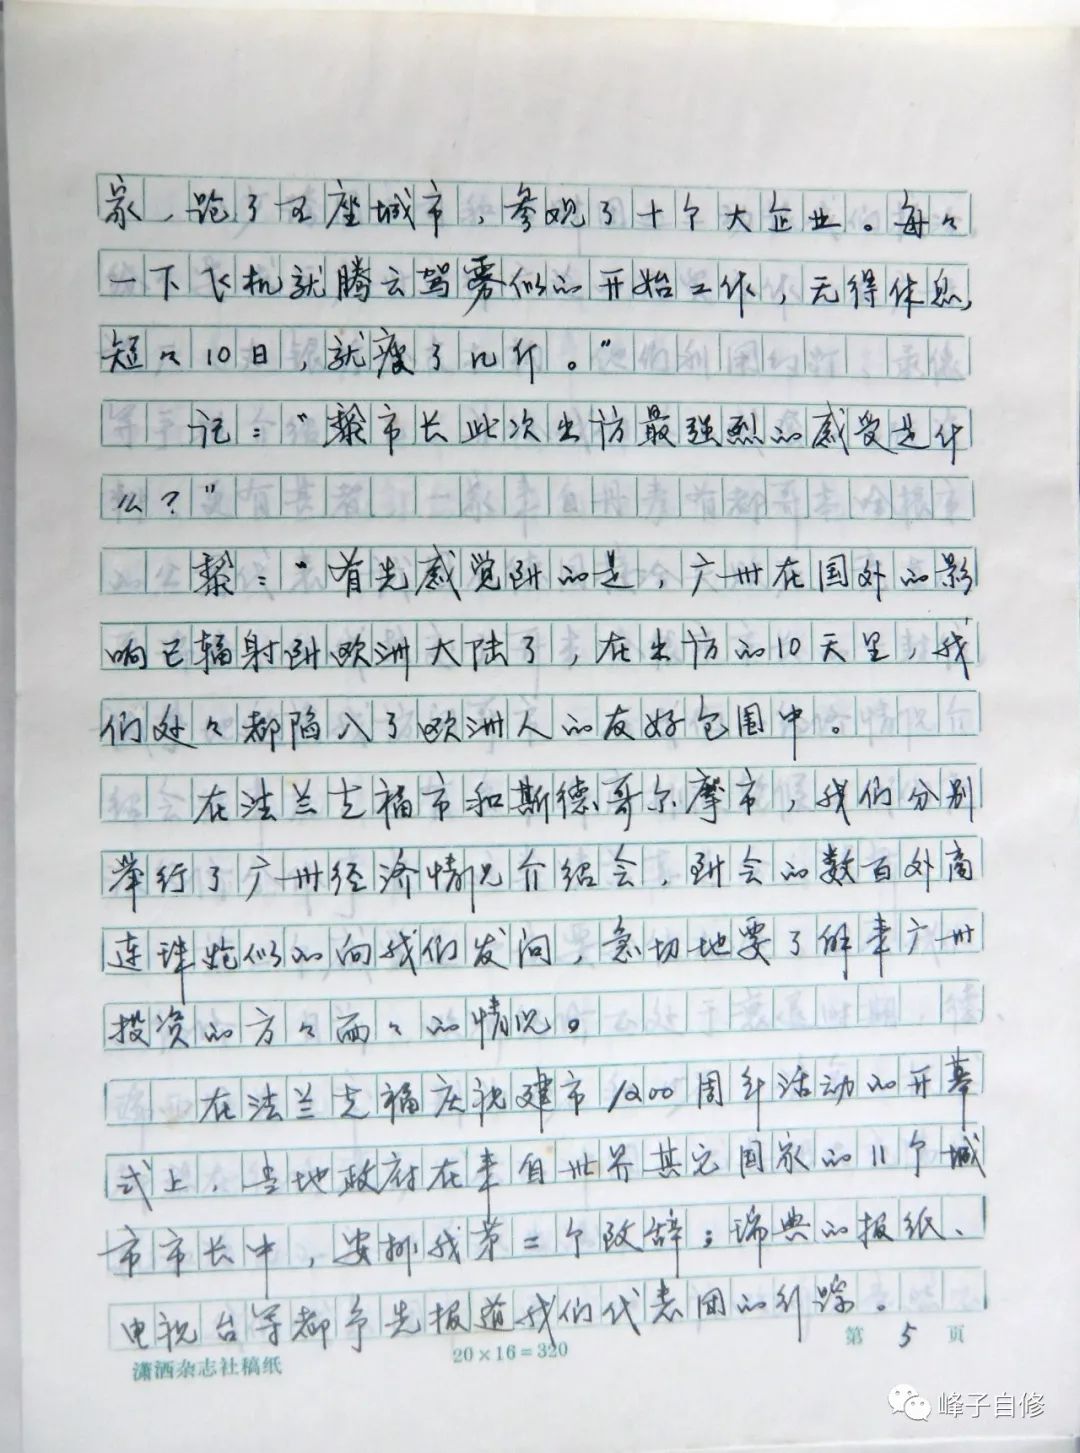 家，跑了五座城市，参观了十个大企业。每々
一下飞机就腾云驾雾似的开始工作，无得休息，
短々10日，就瘦了几斤。”
记：“黎市长此次出访最强烈的感受是什
么？”
黎：“首先感觉到的是，广州在国外的影
响已辐射到欧洲大陆了，在出访的10天里，我
们处々都陷入了欧洲人的友好包围中。
在法兰克福市和斯德哥尔摩市，我们分别
举行了广州经济情况介绍会，到会的数百外商
连珠炮似的向我们发问，急切地要了解来广州
投资的方々面々的情况。
在法兰克福庆祝建市1200周年活动的开幕
式上，当地政府在来自世界其它国家的11个城
市市长中，安排我第二个致辞；瑞典的报纸、
电视台等都予先报道我们代表团的行踪。
潇洒杂志社稿纸
20×16=320
第5页
峰子自修